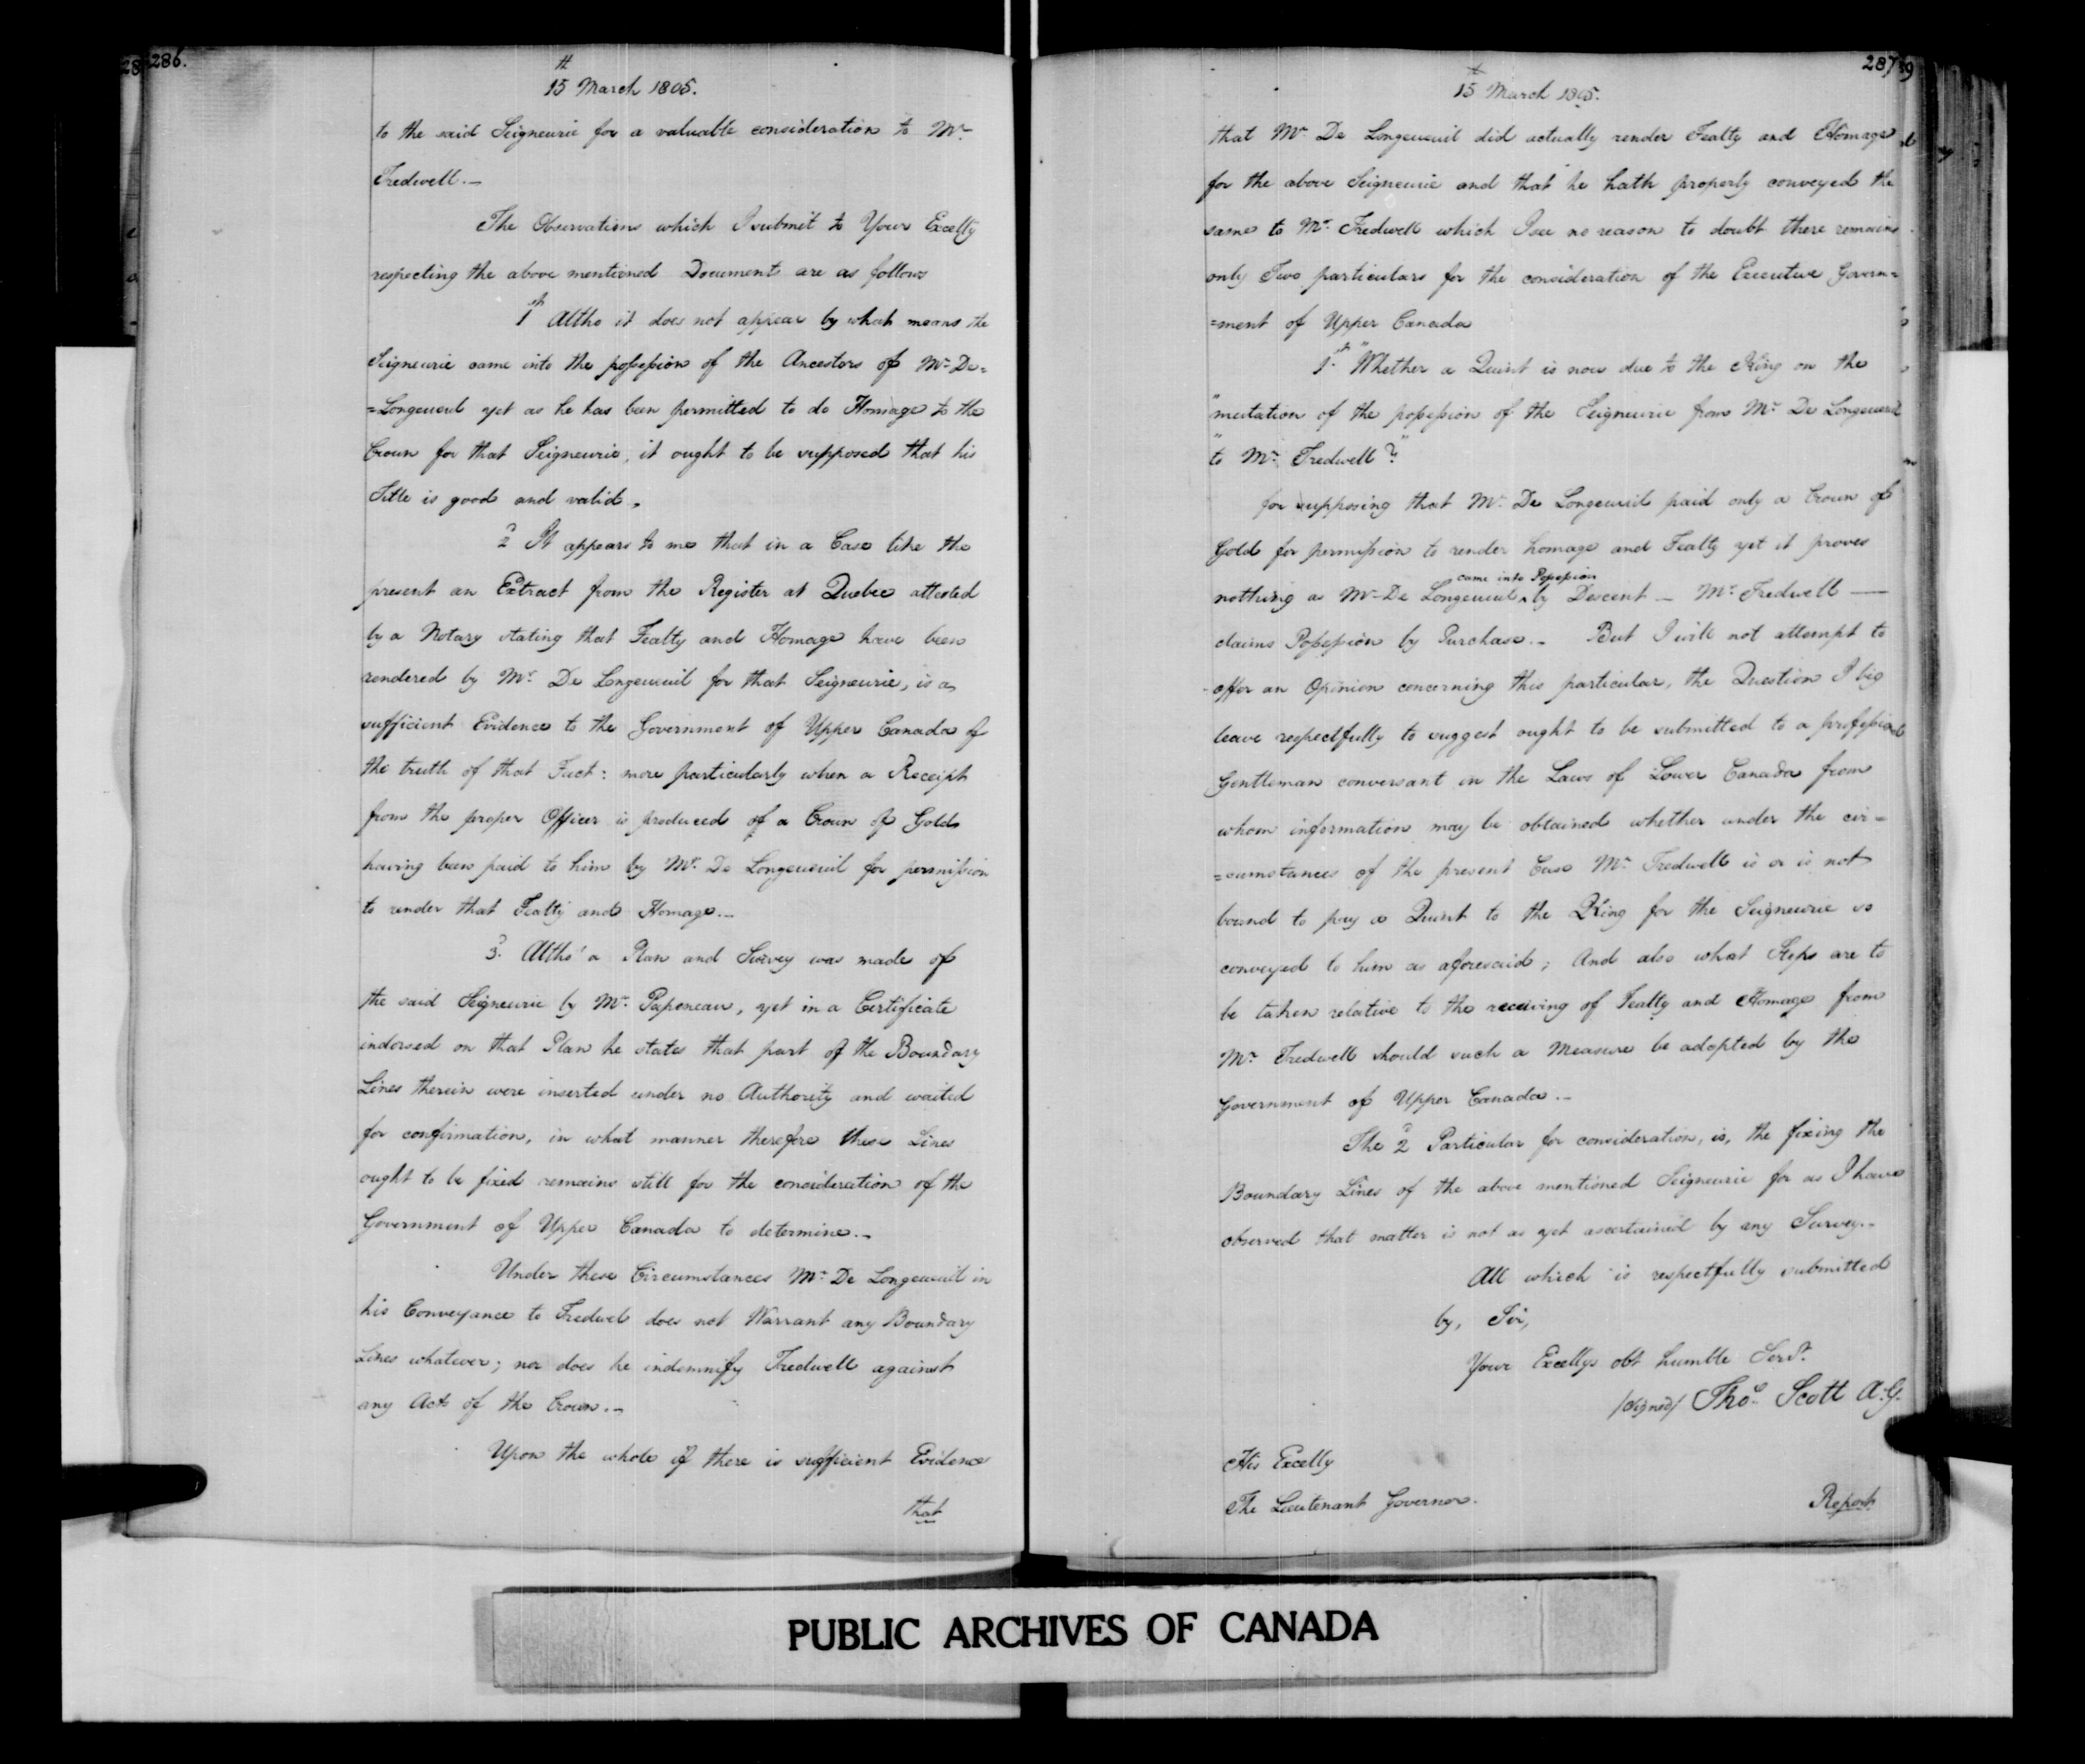 286.
15th March 1805.
to the said Seigneurie for a valuable consideration to Mr.
Tredwell.—
The Observations which I submit to Your Excelly
respecting the above mentioned Document are as follows
1st Altho it does not appear by what means the
Seigneurie came into the possession of the Ancestors of Mr. De=
=Longeueil yet as he has been permitted to do Homage to the
Crown for that Seigneurie, it ought to be supposed that his
Title is good and valid.
2d It appears to me that in a Case like the
present an Extract from the Register at Quebec attested
by a Notary stating that Fealty and Homage have been
rendered by Mr. De Longeueuil for that Seigneurie, is a
sufficient Evidence to the Government of Upper Canada of
the truth of that Fact: more particularly when a Receipt
from the proper Officer is produced of a Crown of Gold
having been paid to him by Mr. De Longeueuil for permission
to render that Fealty and Homage.—
3d. Altho' a Plan and Survey was made of
the said Seigneurie by Mr. Papeneau, yet in a Certificate
indorsed on that Plan he states that part of the Boundary
Lines therein were inserted under no Authority and waited
for confirmation, in what manner therefore these Lines
ought to be fixed remains still for the consideration of the
Government of Upper Canada to determine.—
Under these Circumstances Mr. De Longeueuil in
his Conveyance to Tredwel does not Warrant any Boundary
Lines whatever; nor does he indemnify Tredwell against
any Act of the Crown.—
Upon the whole if there is sufficient Evidence
that
287
15th March 1805.
that Mr. De Longeueuil did actually render Fealty and Homage
for the above Seigneurie and that he hath properly conveyed the
same to Mr. Tredwell which I see no reason to doubt there remains
only Two particulars for the consideration of the Executive Govern=
=ment of Upper Canada
1st. "Whether a Quint is now due to the King on the
"mutation of the possession of the Seigneurie from Mr. De Longeueuil
"to Mr. Tredwell?"
for supposing that Mr. De Longeueuil paid only a Crown of
Gold for permission to render homage and Fealty yet it proves
nothing as Mr. De Longeueuil ^ came into Possession by Descent — Mr. Tredwell —
claims Possession by Purchase.— But I will not attempt to
offer an Opinion concerning this particular, the Question I beg
leave respectfully to suggest ought to be submitted to a professional
Gentleman conversant in the Laws of Lower Canada from
whom information may be obtained whether under the cir=
=cumstances of the present Case Mr. Tredwell is or is not
bound to pay a Quint to the King for the Seigneurie so
conveyed to him as aforesaid; And also what Steps are to
be taken relative to the receiving of Fealty and Homage from
Mr. Tredwell should such a Measure be adopted by the
Government of Upper Canada.—
The 2d Particular for consideration, is, the fixing the
Boundary Lines of the above mentioned Seigneurie for as I have
observed that matter is not as yet ascertained by any Survey.—
All which is respectfully submitted
by, Sir,
Your Excellys obt humble Servt.
/signed/ Thos. Scott A.G.
His Excelly
The Lieutenant Governor.
Report
PUBLIC ARCHIVES OF CANADA